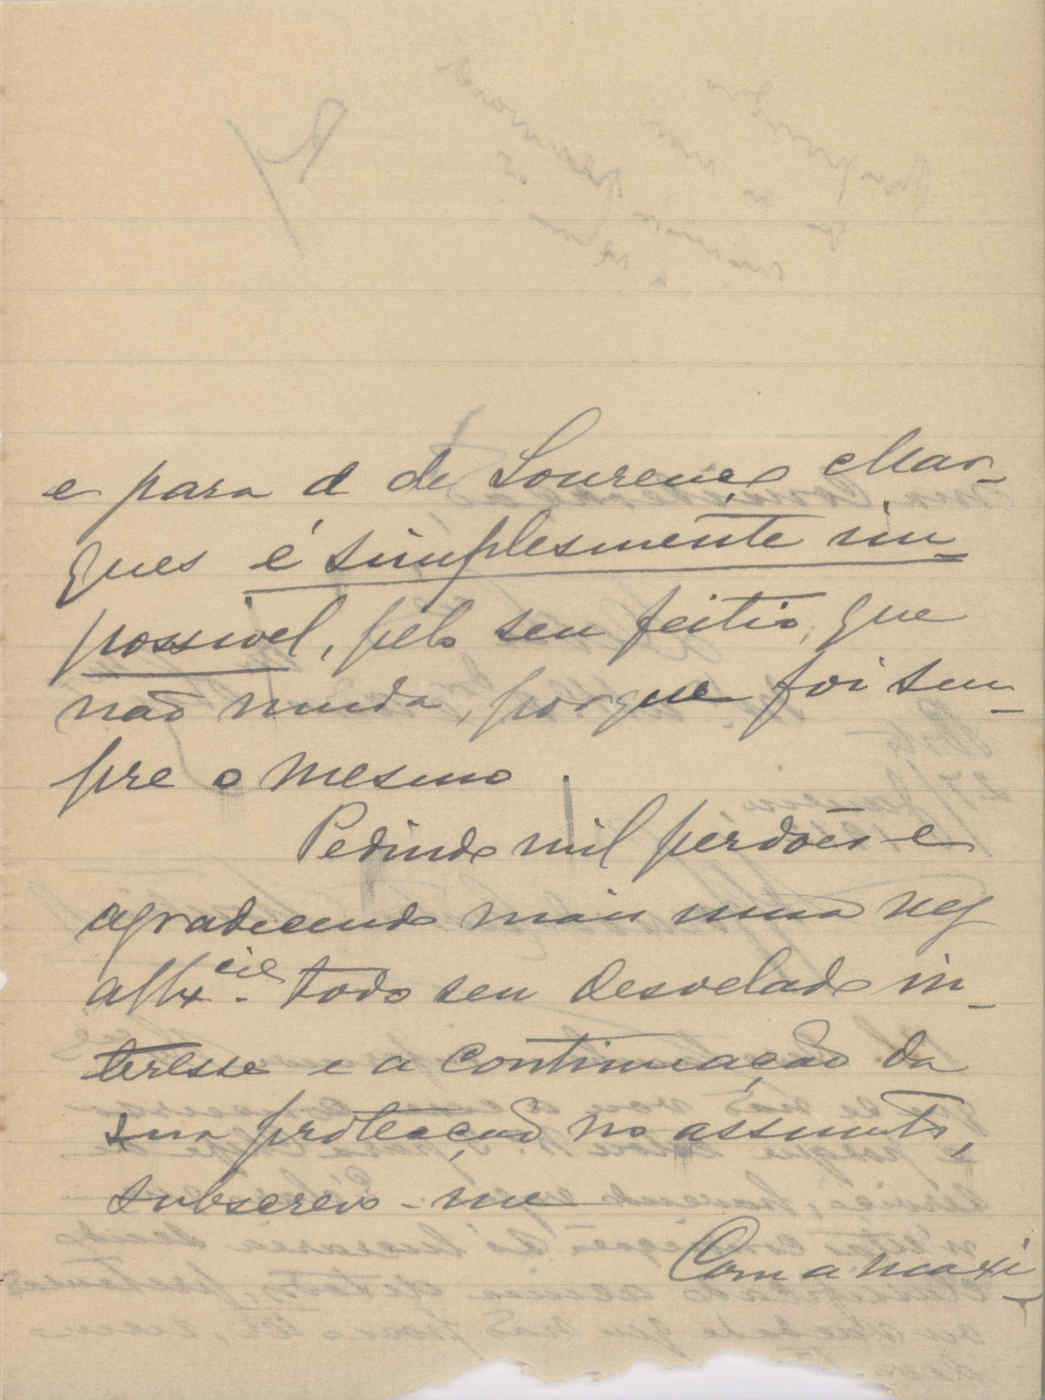 e para a de Lourenço Mar-
ques é simplesmente im-
possivel, pelo seu feitio, que
não muda, porque foi sem-
pre o mesmo.
Pedindo mil perdões e
agradecendo mais uma vez
todo seu desvelado in-
teresse e a continuação da
sua protecção no assumpto,
subscrevo-me
Com a maxi-